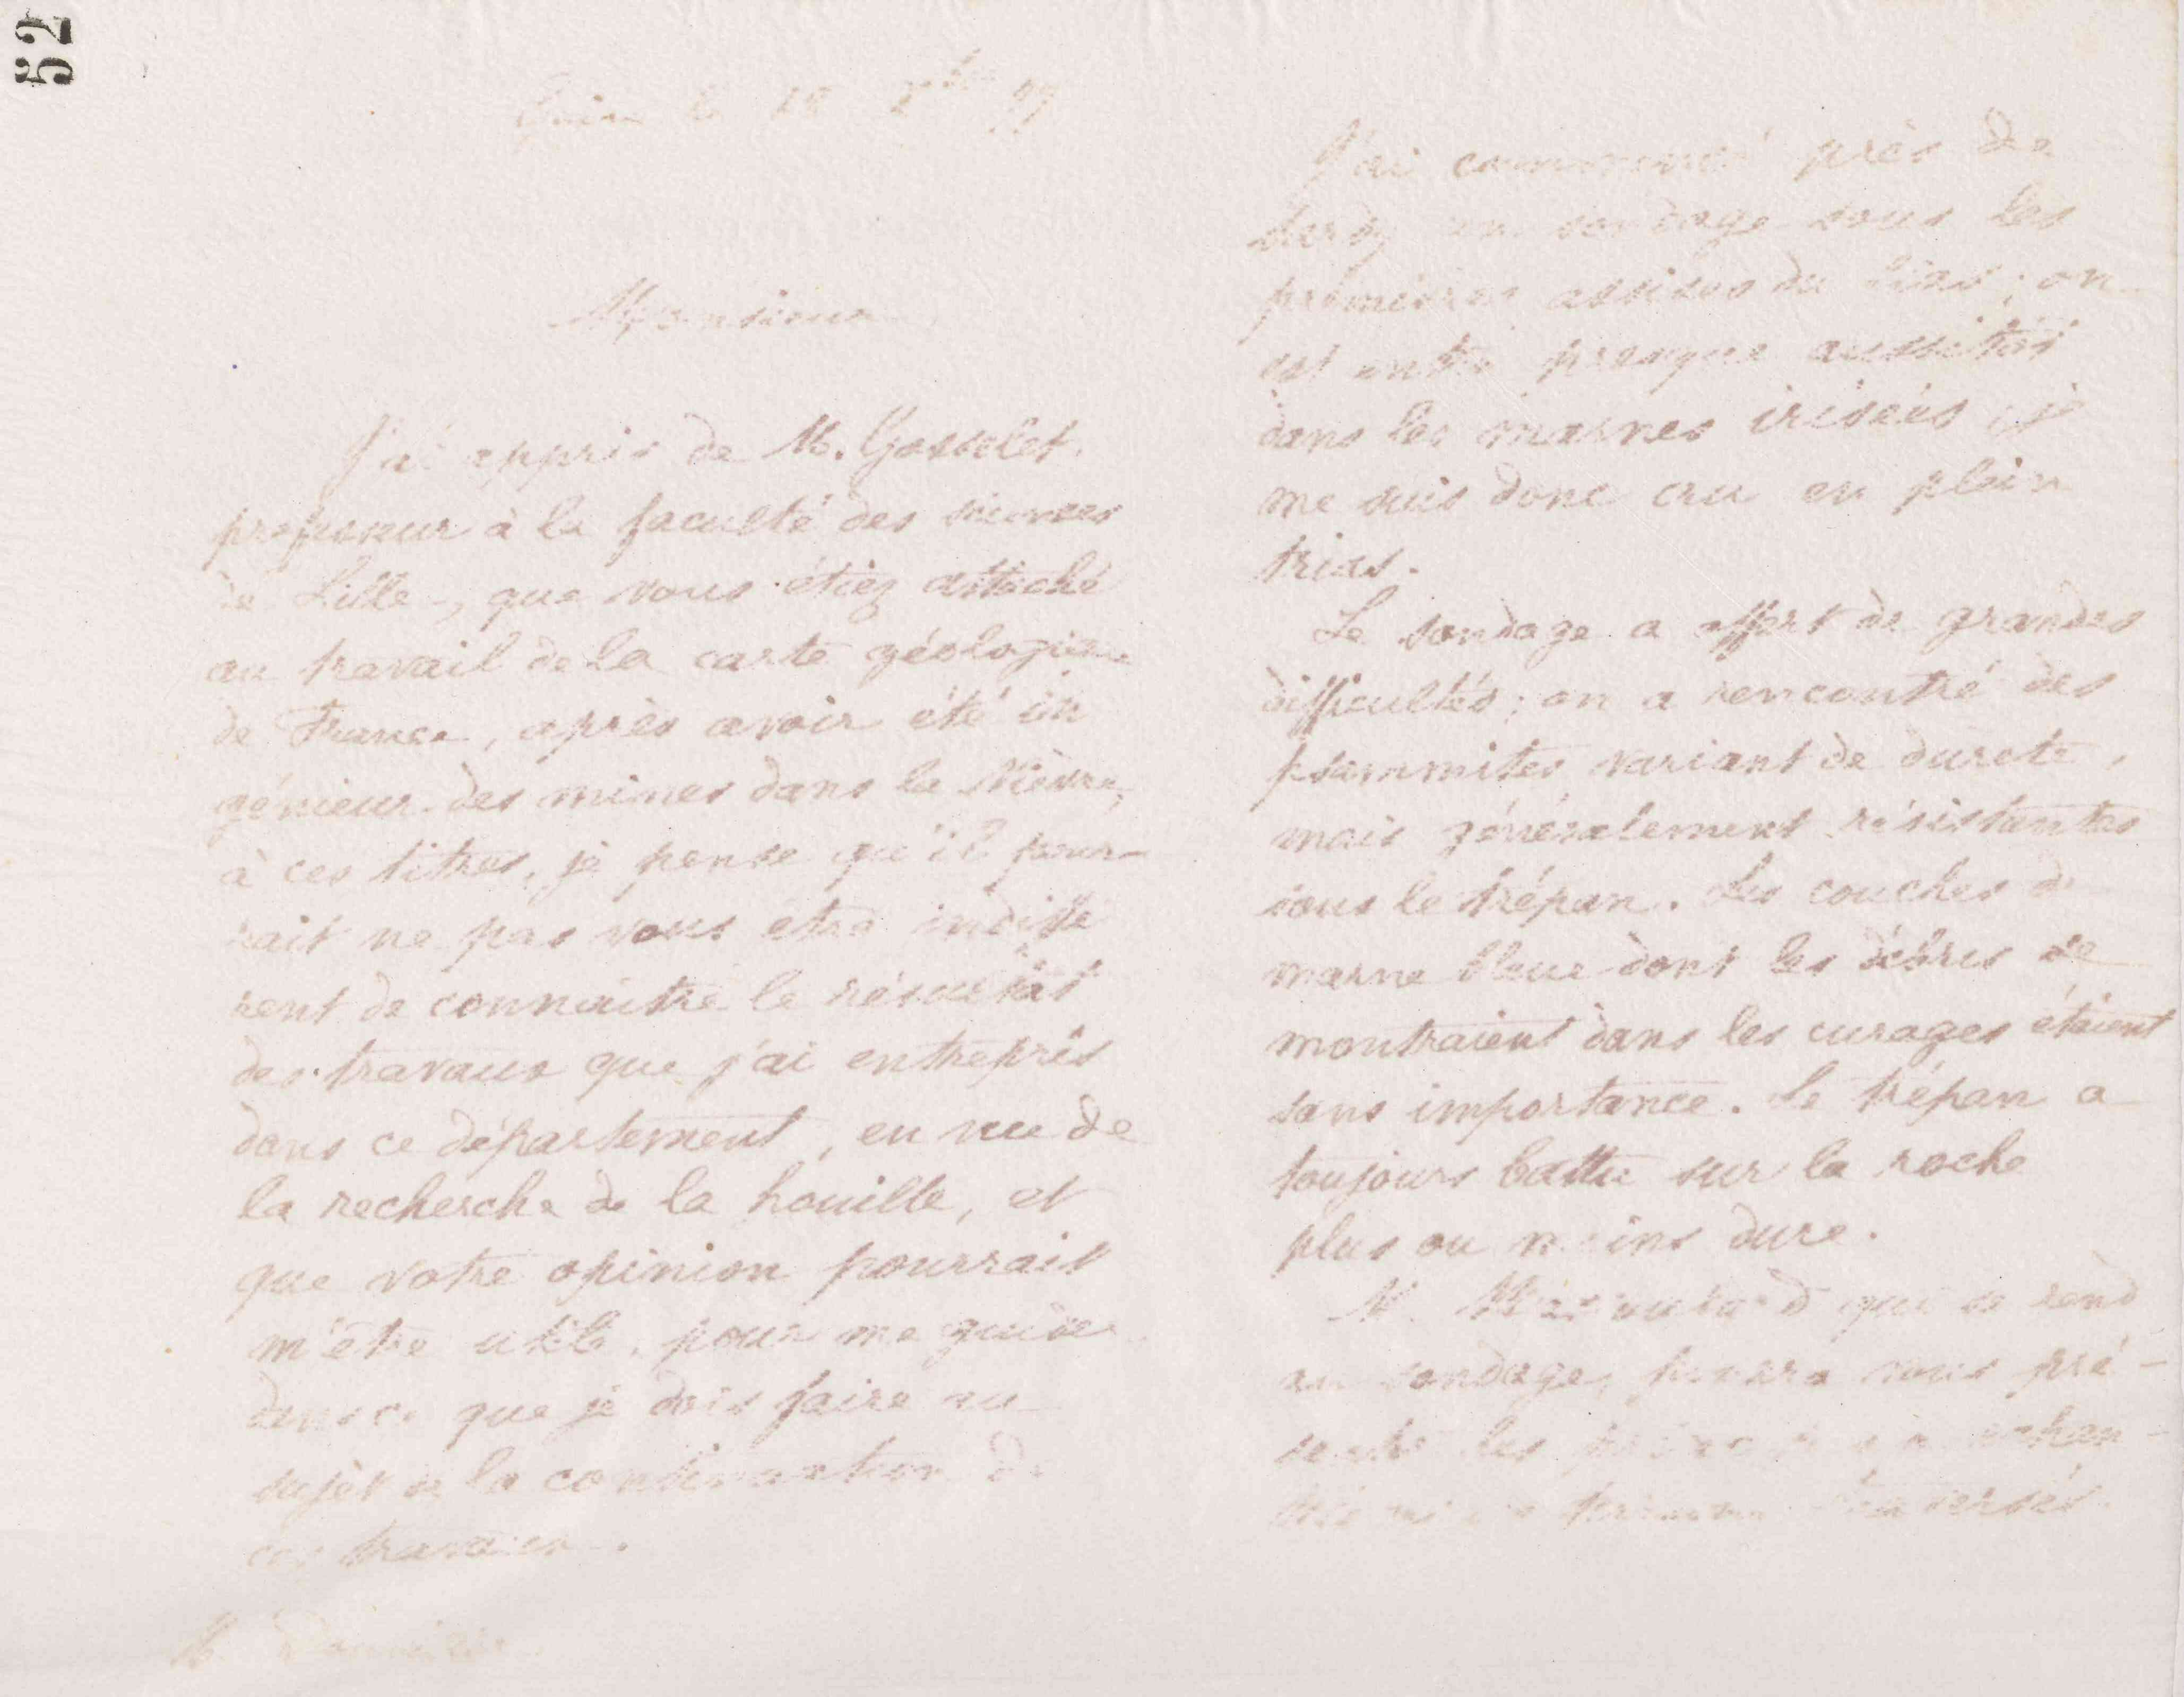 52
le 28 bre 77
Monsieur
J'ai appris de M. Gosselet,
professeur à la faculté des sciences
de Lille, que vous étiez attaché
au travail de la carte géologique
de France, après avoir été in
génieur des mines dans la Nièvre,
à ces titres, je pense qu'il pour-
rait ne pas vous etre indiffé
rent de connaitre le résultat
des travaux que j'ai entrepris
dans ce département, en vue de
la recherche de la houille, et
que votre opinion pourrait
m'être utile, pour me guider
dans ce que je dois faire au
sujet de la continuation de
ces travaux.
M.
J'ai commencé près de
un sondage sous les
premières assises du lias; on
est entré presque aussitôt
dans les marnes irisées, je
me suis donc cru en plein
trias.
Le sondage a offert de grandes
difficultés; on a rencontré des
psammites variant de dureté,
mais généralement résistantes
sous le trépan. Les couches de
marne bleue dont les débris se
montraient dans les curages étaient
sans importance. Le trépan a
toujours battu sur la roche
plus ou moins dure.
M. qui se rend
au sondage, pourra vous pré-
senter les échan-
traversés